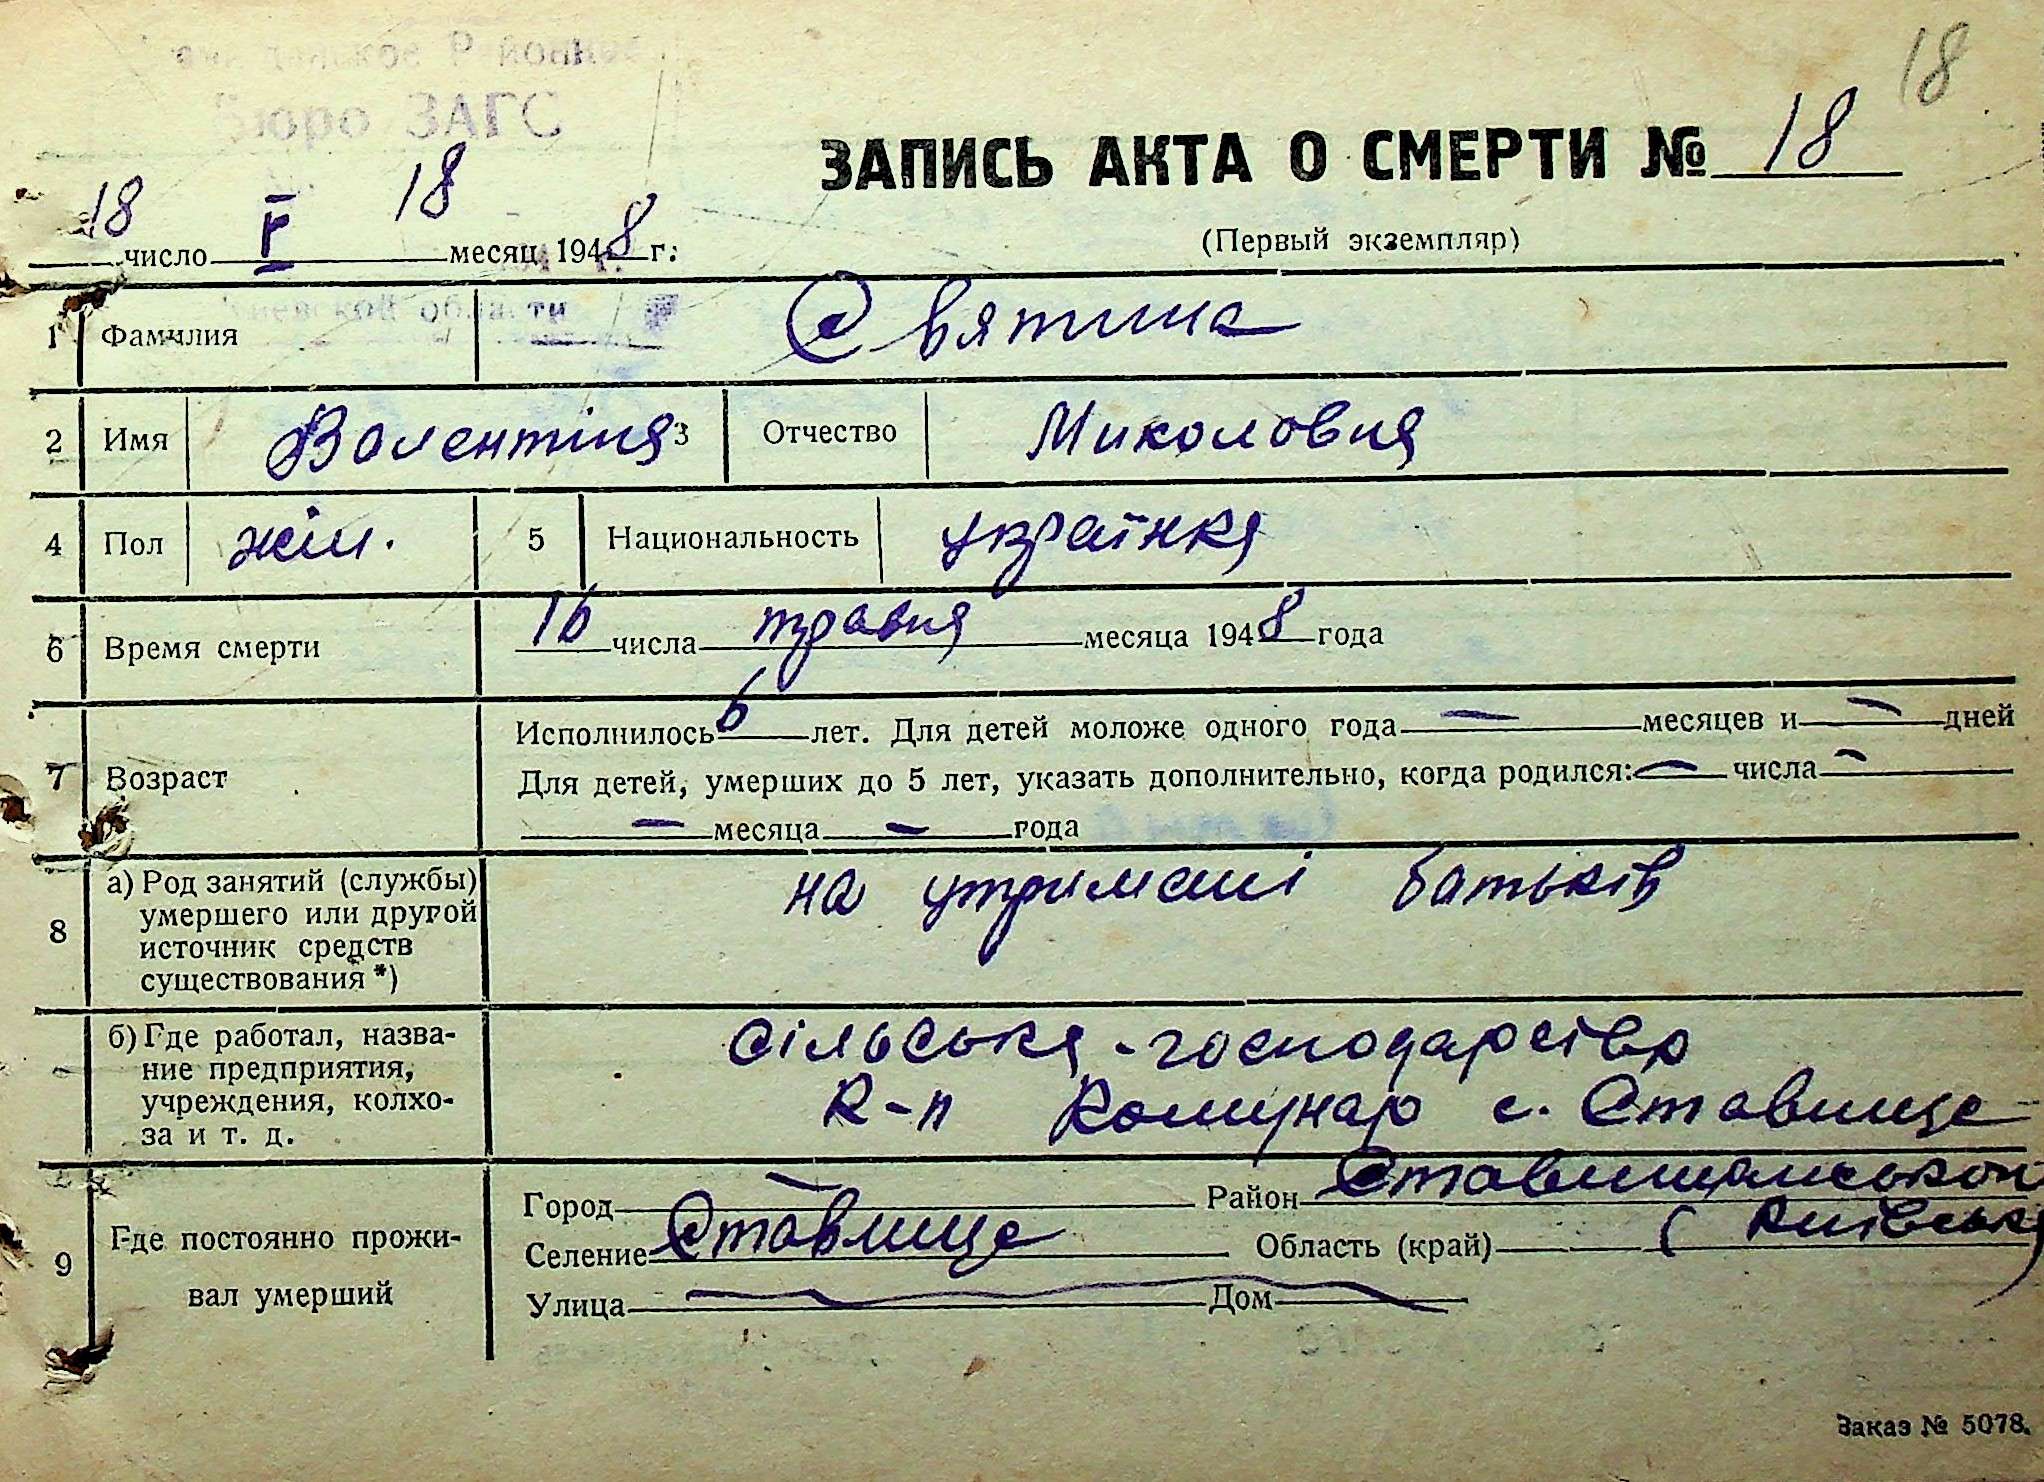 18
Бюро ЗАГС
ЗАПИСЬ АКТА О СМЕРТИ № 18
18 число V 18 месяц 1948 г.
(Первый экземпляр)
Киевской области
1 Фамилия Святина
2 Имя Валентіна 3 Отчество Миколовна
4 Пол жін. 5 Національность українка
6 Время смерти 16 числа травня месяца 1948 года
7 Возраст
Исполнилось 6 лет. Для детей моложе одного года — месяцев и — дней
Для детей, умерших до 5 лет, указать дополнительно, когда родился: — числа —
— месяца — года
8 а) Род занятий (службы) умершего или другой источник средств существования *)
на утримані батьків
б) Где работал, назва-
ние предприятия,
учреждения, колхо-
за и т. д.
сільська-господарство
к-п Комунар с. Ставище
9 Где постоянно прожи-
вал умерший
Город — Район Ставищанський
Селение Ставище Область (край) Київська
Улица — Дом —
Заказ № 5078.